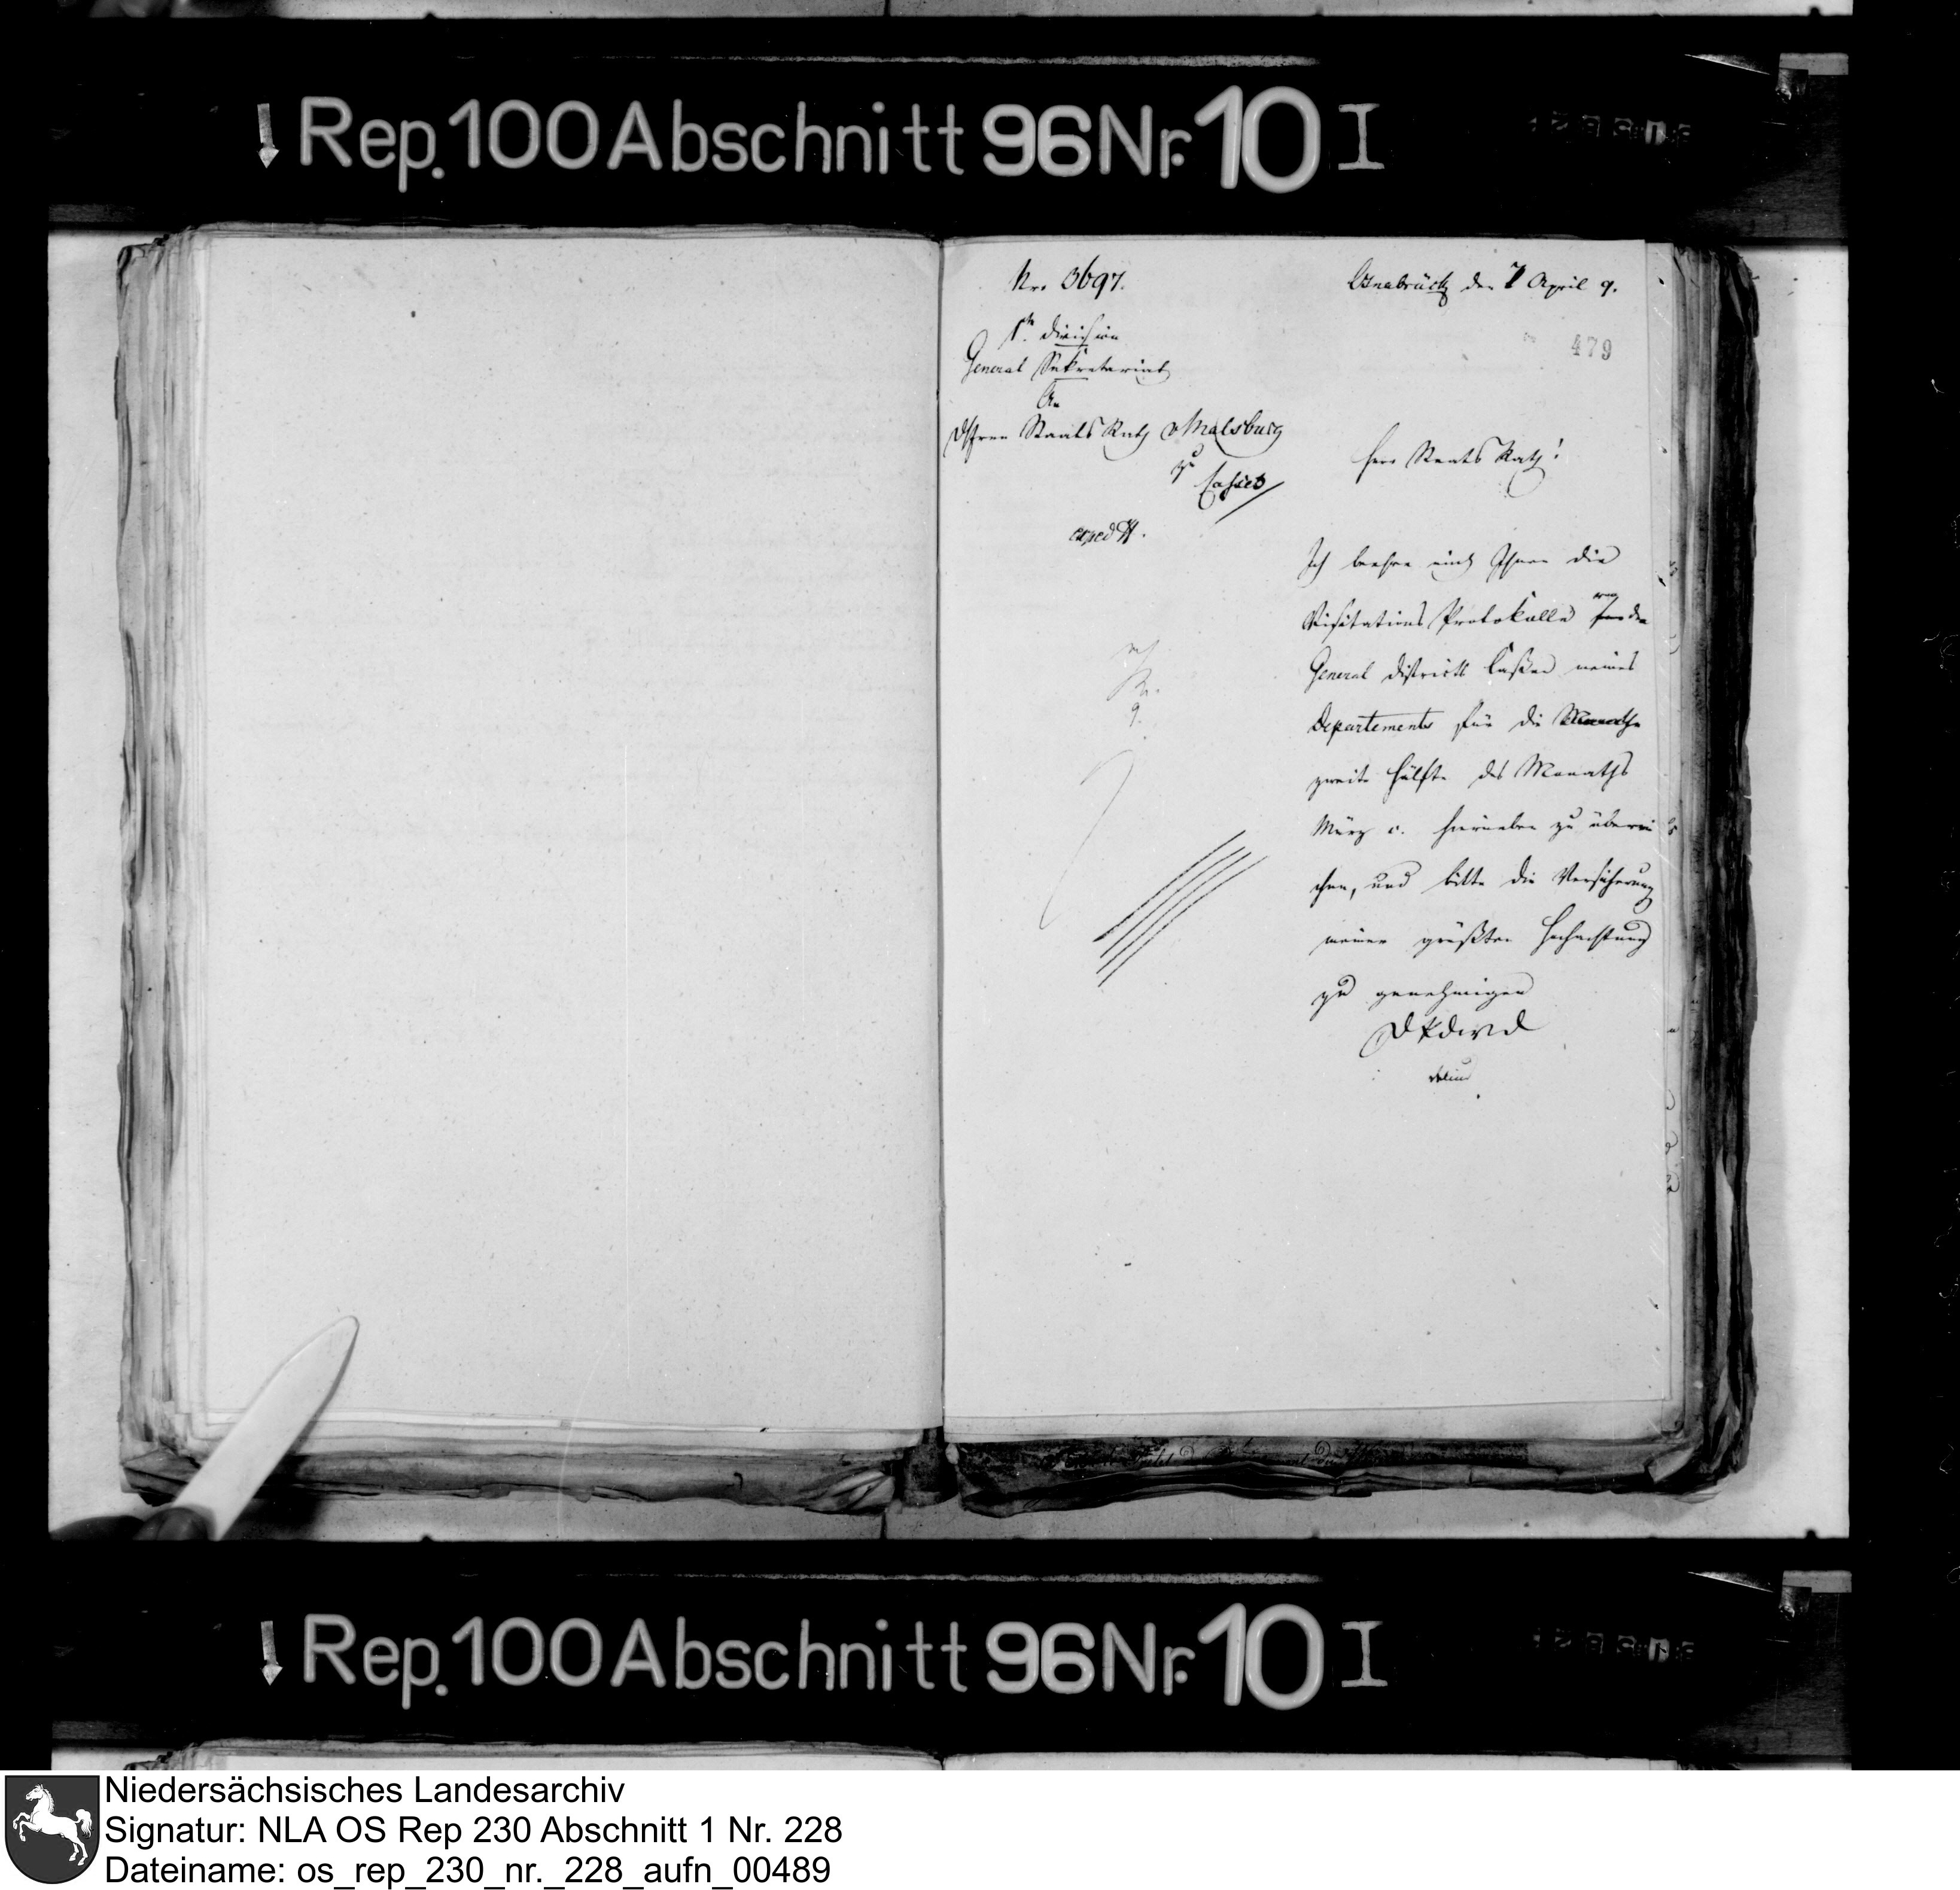 Rep. 100 Abschnitt 96 Nr. 10 I
Nro 3697.
Osnabrück den 7 April 9.
479
1te Division
General Sekretariat
An
den Herrn Staats Rath v Malsburg
zu
Cassel
exped
Herr Staats Rath!
Ich beehre mich Ihnen die
Visitations Protokolle von den
General District Cassen meines
Departements für die Monathe
zweite Hälfte des Monaths
März c. hierneben zu überrei
chen, und bitte die Versicherung
meiner größten Hochachtung
zu genehmigen
Rep. 100 Abschnitt 96 Nr. 10 I
Niedersächsisches Landesarchiv
Signatur: NLA OS Rep 230 Abschnitt 1 Nr. 228
Dateiname: os_rep_230_nr._228_aufn_00489